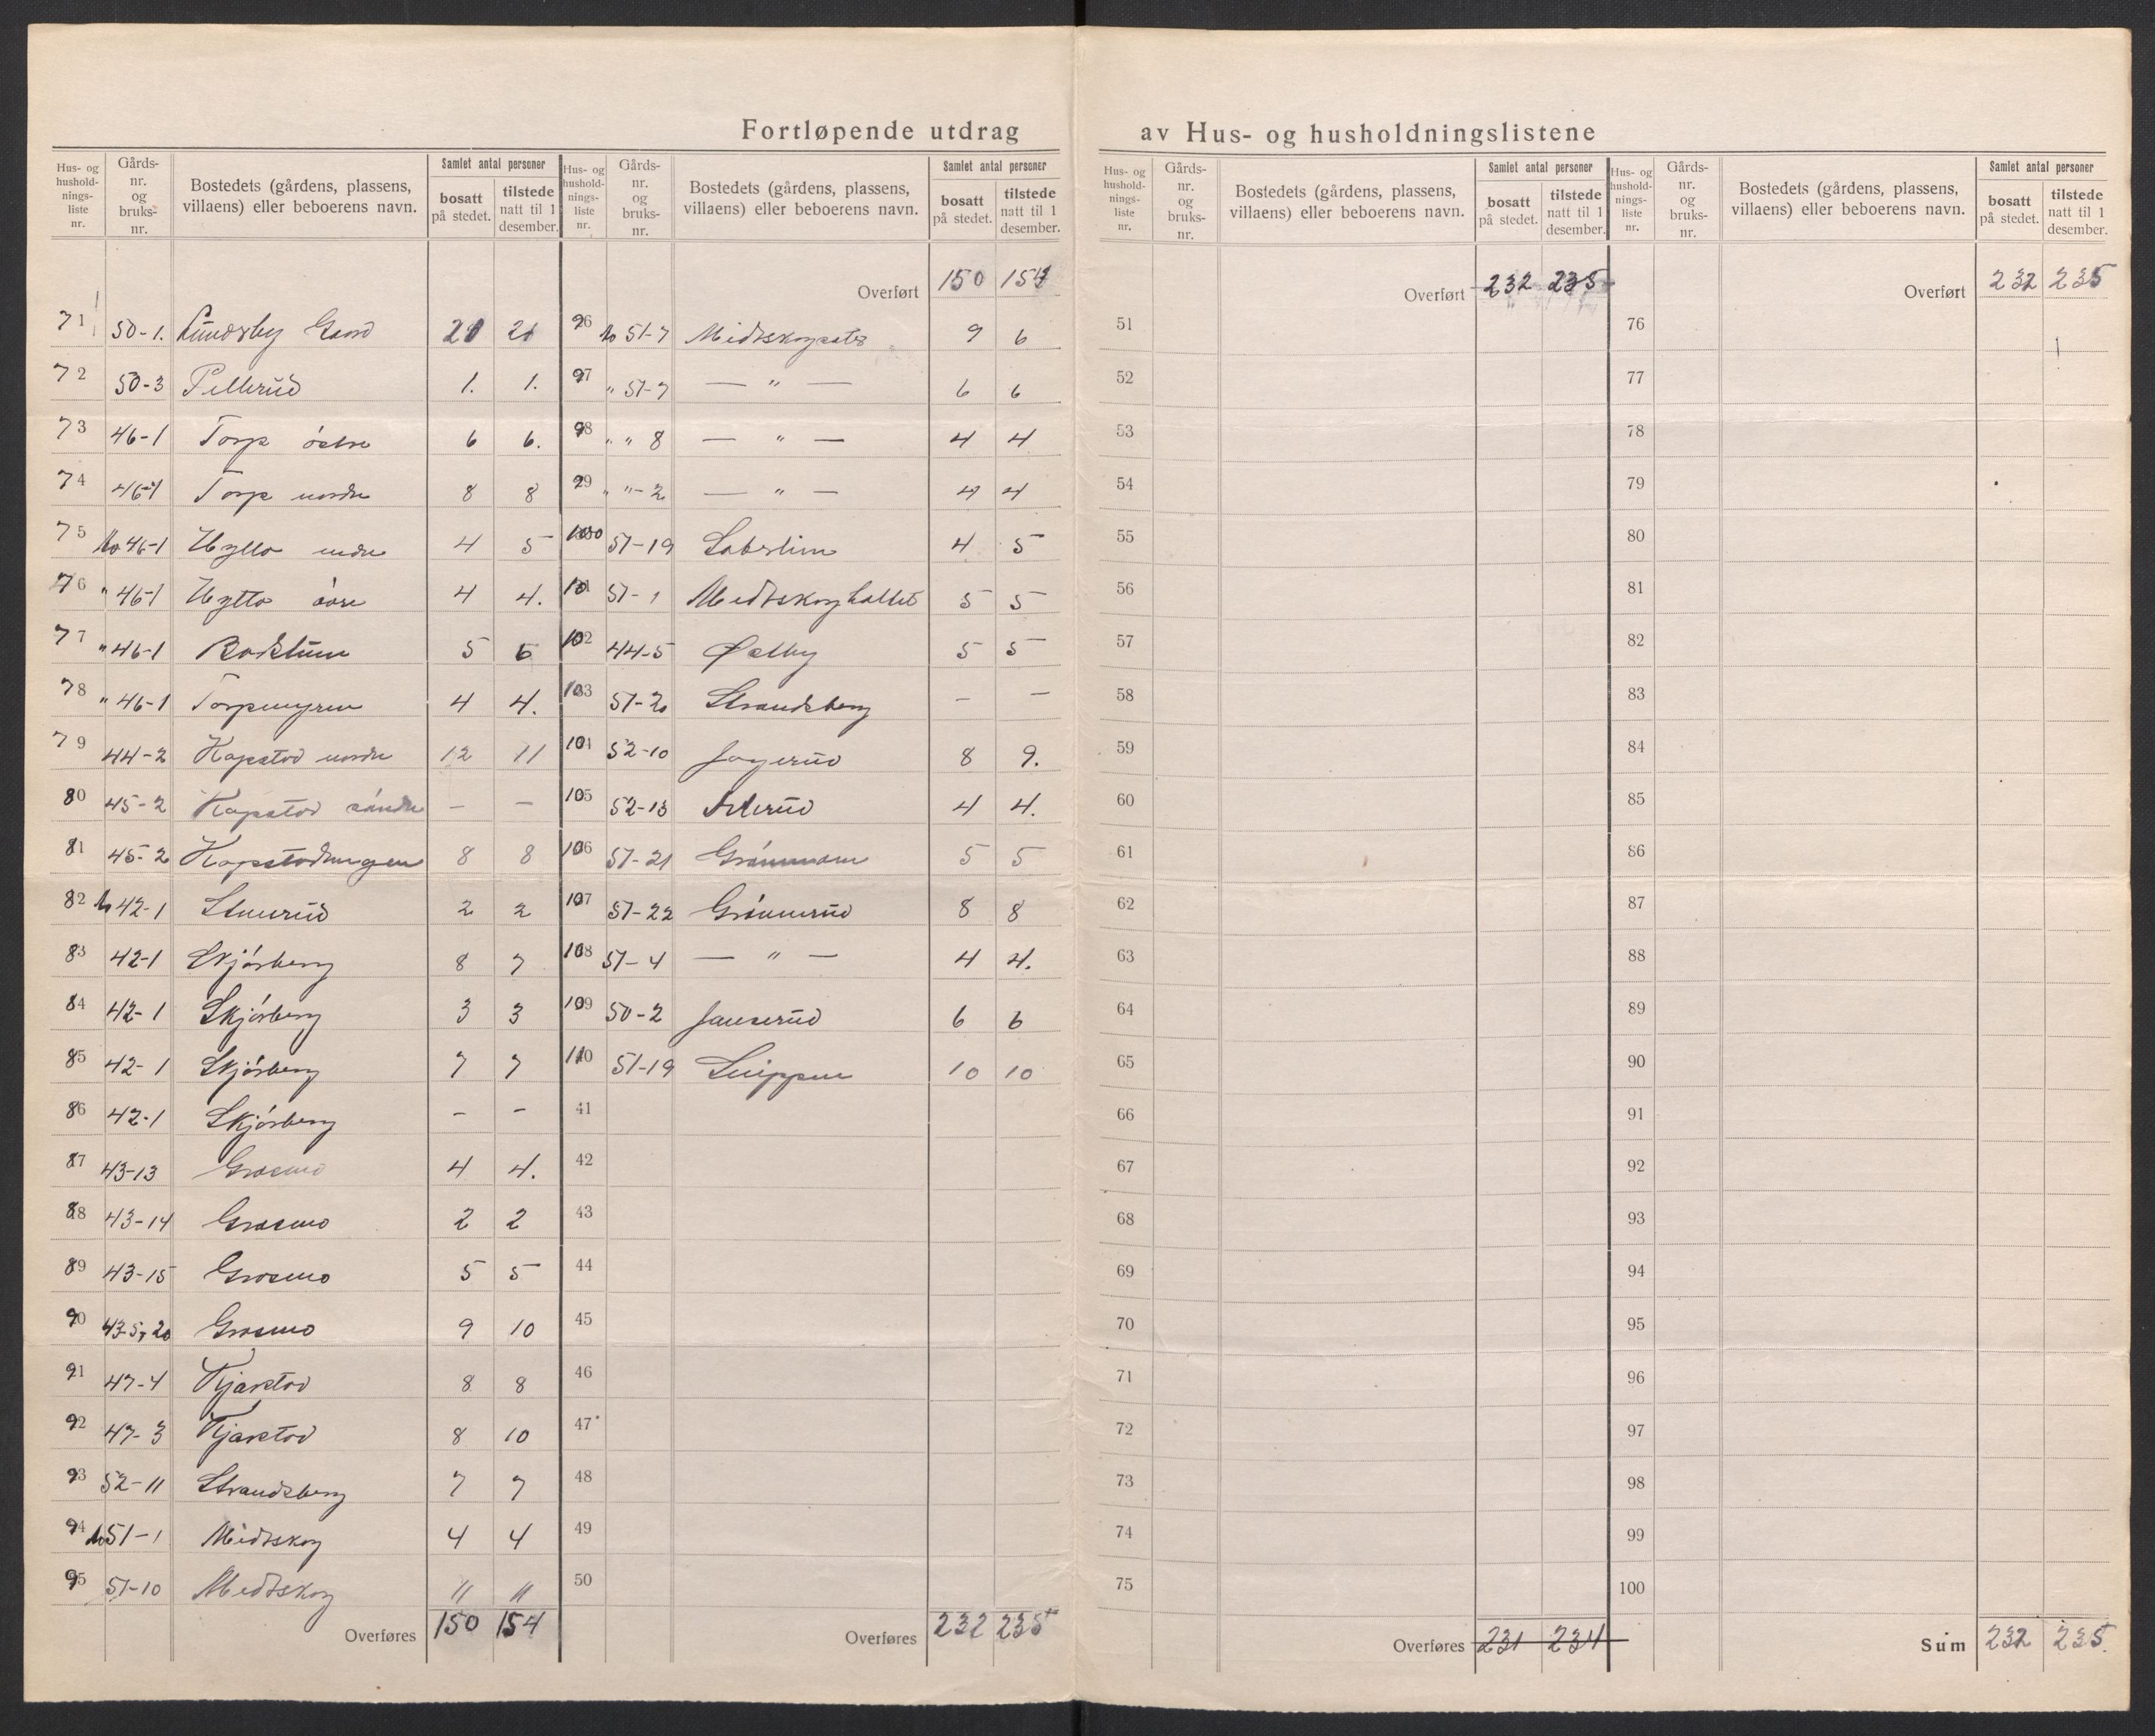 Fortløpende utdrag av Hus- og husholdningslistene
Hus- og hushold-nings-liste nr. | Gårds-nr. og bruks-nr. | Bostedets (gårdens, plassens, villaens) eller beboerens navn. | Samlet antal personer | bosatt på stedet. | tilstede natt til 1 desember.
71 50-1. Lundsby Gaard 20 21
72 50-3 Pellerud 1. 1.
73 46-1 Torp östre 6 6.
74 46-1 Torp nordre 8 8
75 46-1 Hytta nedre 4 5
76 " 46-1 Hytta övre 4 4.
77 " 46-1 5 6
78 " 46-1 Torpmyren 4 4.
79 44-2 Kapstad nordre 12 11
80 45-2 Kapstad söndre – –
81 45-2 8 8
82 42-1 Stuerud 2 2
83 42-1 Skjörberg 8 7
84 42-1 Skjörberg 3 3
85 42-1 Skjörberg 7 7
86 42-1 Skjörberg – –
87 43-13 Grasmo 4 4.
88 43-14 Grasmo 2 2
89 43-15 Grasmo 5 5
90 43-5, 20 Grasmo 9 10
91 47-4 Kjarstad 8 8
92 47-3 Kjarstad 8 10
93 52-11 Strandsberg 7 7
94 51-1 Midtskog 4 4
95 51-10 Midtskog 11 11
Overføres 150 154
Hus- og hushold-nings-liste nr. | Gårds-nr. og bruks-nr. | Bostedets (gårdens, plassens, villaens) eller beboerens navn. | Samlet antal personer | bosatt på stedet. | tilstede natt til 1 desember.
Overført 150 154
96 51-7 9 6
97 " 51-7 — " — 6 6
98 " " 8 — " — 4 4
99 " "-2 — " — 4 4
100 51-19 4 5
101 51-1 5 5
102 44-5 Østby 5 5
103 51-20 Strandsberg – –
104 52-10 Jagerud 8 9.
105 52-13 4 4.
106 51-21 5 5
107 51-22 Grönnerud 8 8
108 51-4 — " — 4 4.
109 50-2 Janserud 6 6
110 51-19 Snippen 10 10
41
42
43
44
45
46
47
48
49
50
Overføres 232 235
Hus- og hushold-nings-liste nr. | Gårds-nr. og bruks-nr. | Bostedets (gårdens, plassens, villaens) eller beboerens navn. | Samlet antal personer | bosatt på stedet. | tilstede natt til 1 desember.
Overført 232 235
51
52
53
54
55
56
57
58
59
60
61
62
63
64
65
66
67
68
69
70
71
72
73
74
75
Overføres 231 234
Hus- og hushold-nings-liste nr. | Gårds-nr. og bruks-nr. | Bostedets (gårdens, plassens, villaens) eller beboerens navn. | Samlet antal personer | bosatt på stedet. | tilstede natt til 1 desember.
Overført 232 235
76
77
78
79
80
81
82
83
84
85
86
87
88
89
90
91
92
93
94
95
96
97
98
99
100
Sum 232 235.